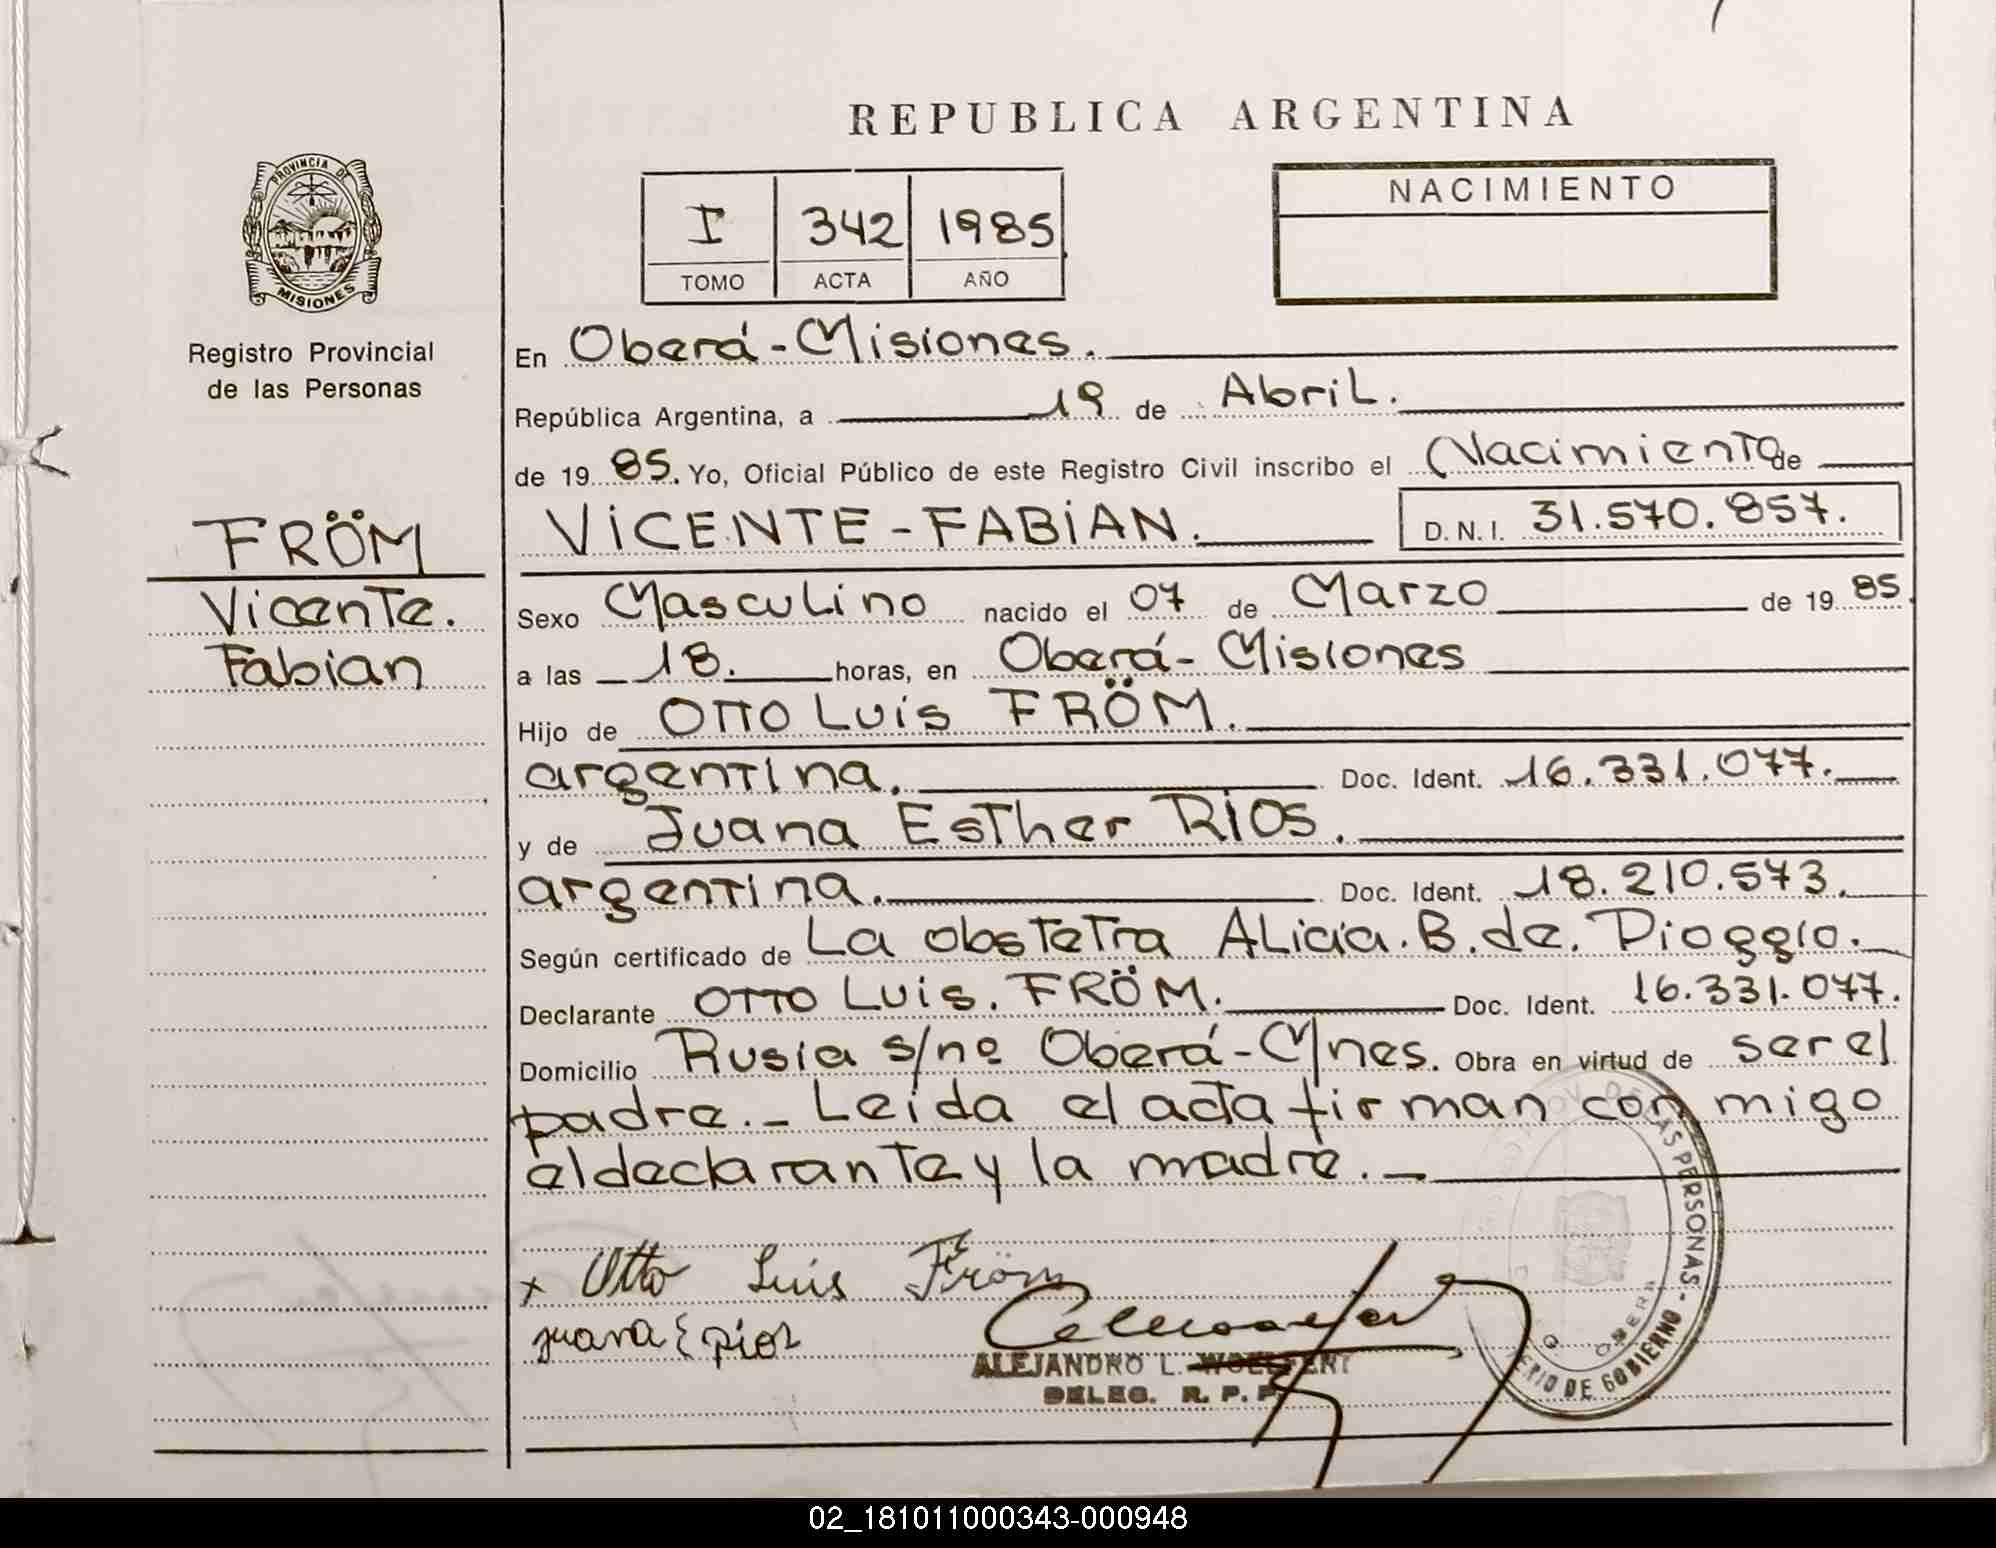 REPUBLICA ARGENTINA
PROVINCIA DE
MISIONES
Registro Provincial
de las Personas
I 342 1985
TOMO ACTA AÑO
NACIMIENTO
En Oberá - Misiones.
República Argentina, a 19 de Abril.
de 19 85. Yo, Oficial Público de este Registro Civil inscribo el Nacimiento de
FRÖM
Vicente.
Fabian
VICENTE - FABIAN. D. N. I. 31.570.857.
Sexo Masculino nacido el 07 de Marzo de 19 85.
a las 18. horas, en Oberá - Misiones
Hijo de OTTO LUIS FRÖM.
argentina. Doc. Ident. 16.331.077.
y de Juana Esther RIOS.
argentina. Doc. Ident. 18.210.573.
Según certificado de La obstetra Alicia. B. de. Pioggio.
Declarante OTTO LUIS. FRÖM. Doc. Ident. 16.331.077.
Domicilio Rusia s/nº Oberá - Mnes. Obra en virtud de ser el
padre. _ Leida el acta firman con migo
el declarante y la madre. _
x Otto Luis Fröm
juana E rios
ALEJANDRO L. WOELFERT
DELEG. R. P. P.
DE LAS PERSONAS -
ERIO DE GOBIERNO
02_181011000343-000948